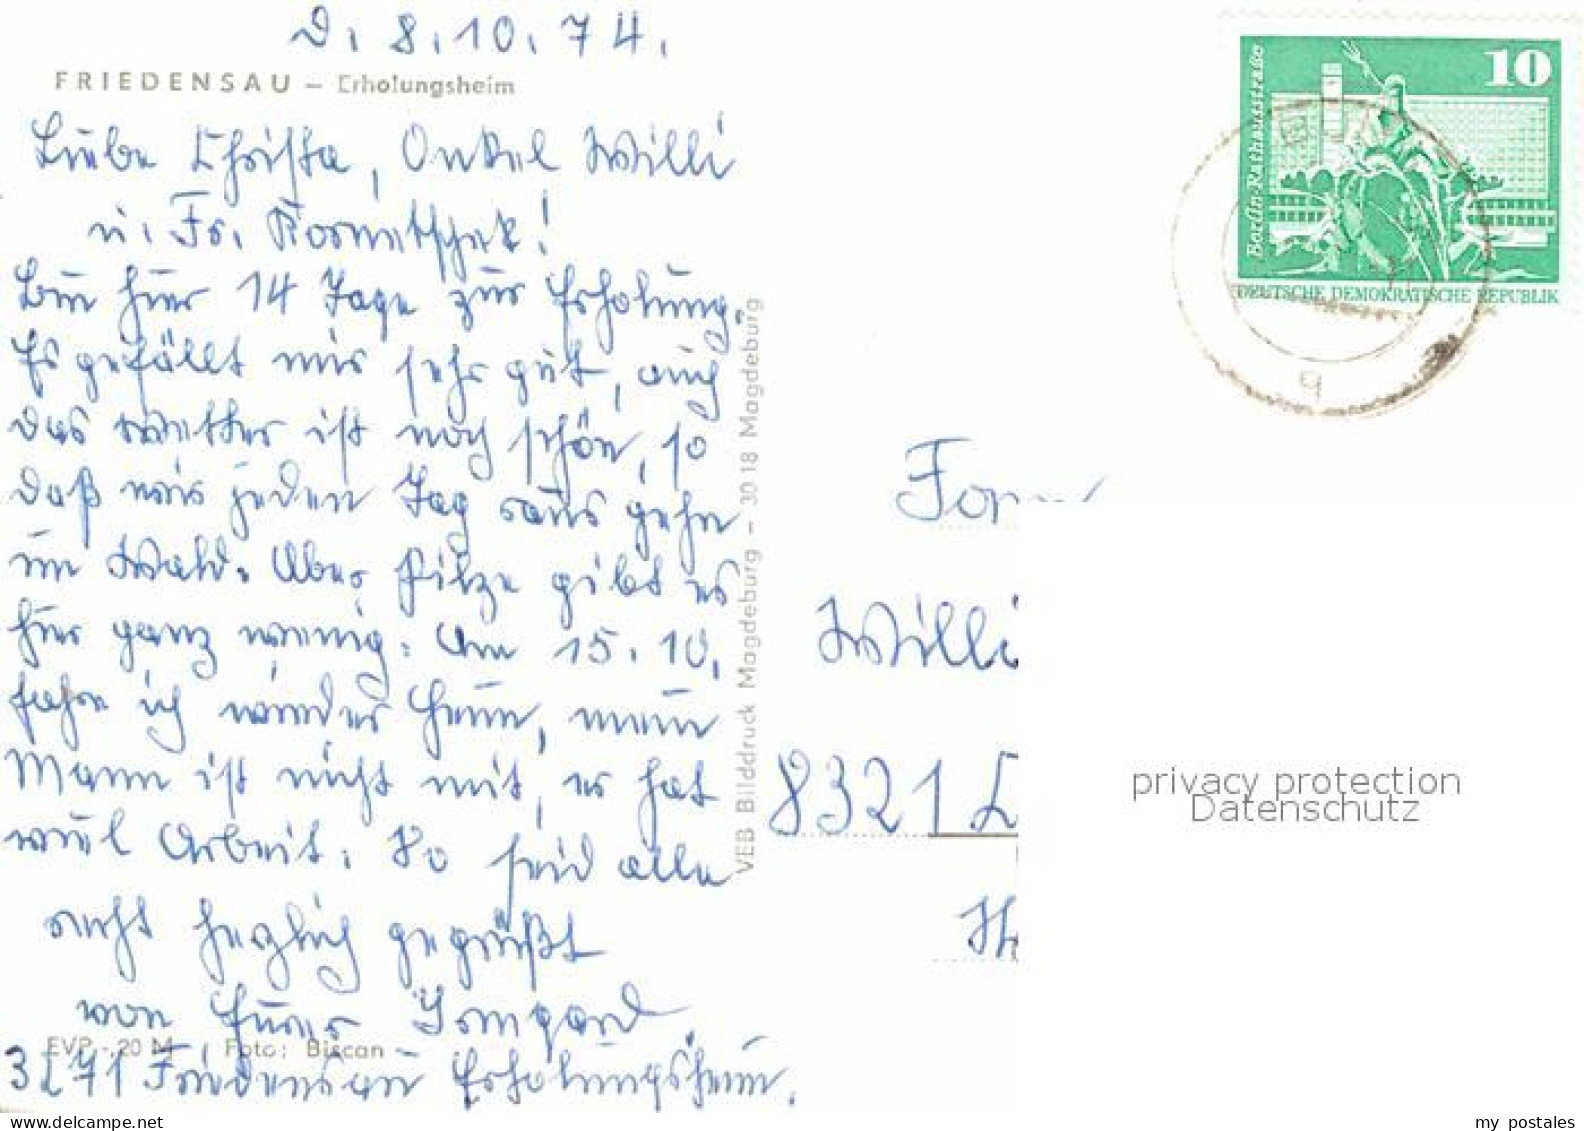 D. 8.10.74.
FRIEDENSAU – Erholungsheim
Liebe Christa, Onkel Willi
u. Fr.
Bin hier 14 Tage zur Erholung.
Es gefällt mir sehr gut, auch
das Wetter ist noch schön, so
daß wir jeden Tag raus gehn
im Wald. Aber Pilze gibt es
hier ganz wenig. Am 15.10.
fahre ich wieder heim, mein
Mann ist nicht mit, er hat
viel Arbeit. So seid alle
recht herzlich gegrüßt
von Eurer Irmgard
EVP -,20 M Foto: Biscan
3271 Friedensau Erholungsheim.
VEB Bilddruck Magdeburg – 30 18 Magdeburg
10
Berlin-Rathausstraße
DEUTSCHE DEMOKRATISCHE REPUBLIK
Willi
8321
privacy protection
Datenschutz
www.delcampe.net
my postales